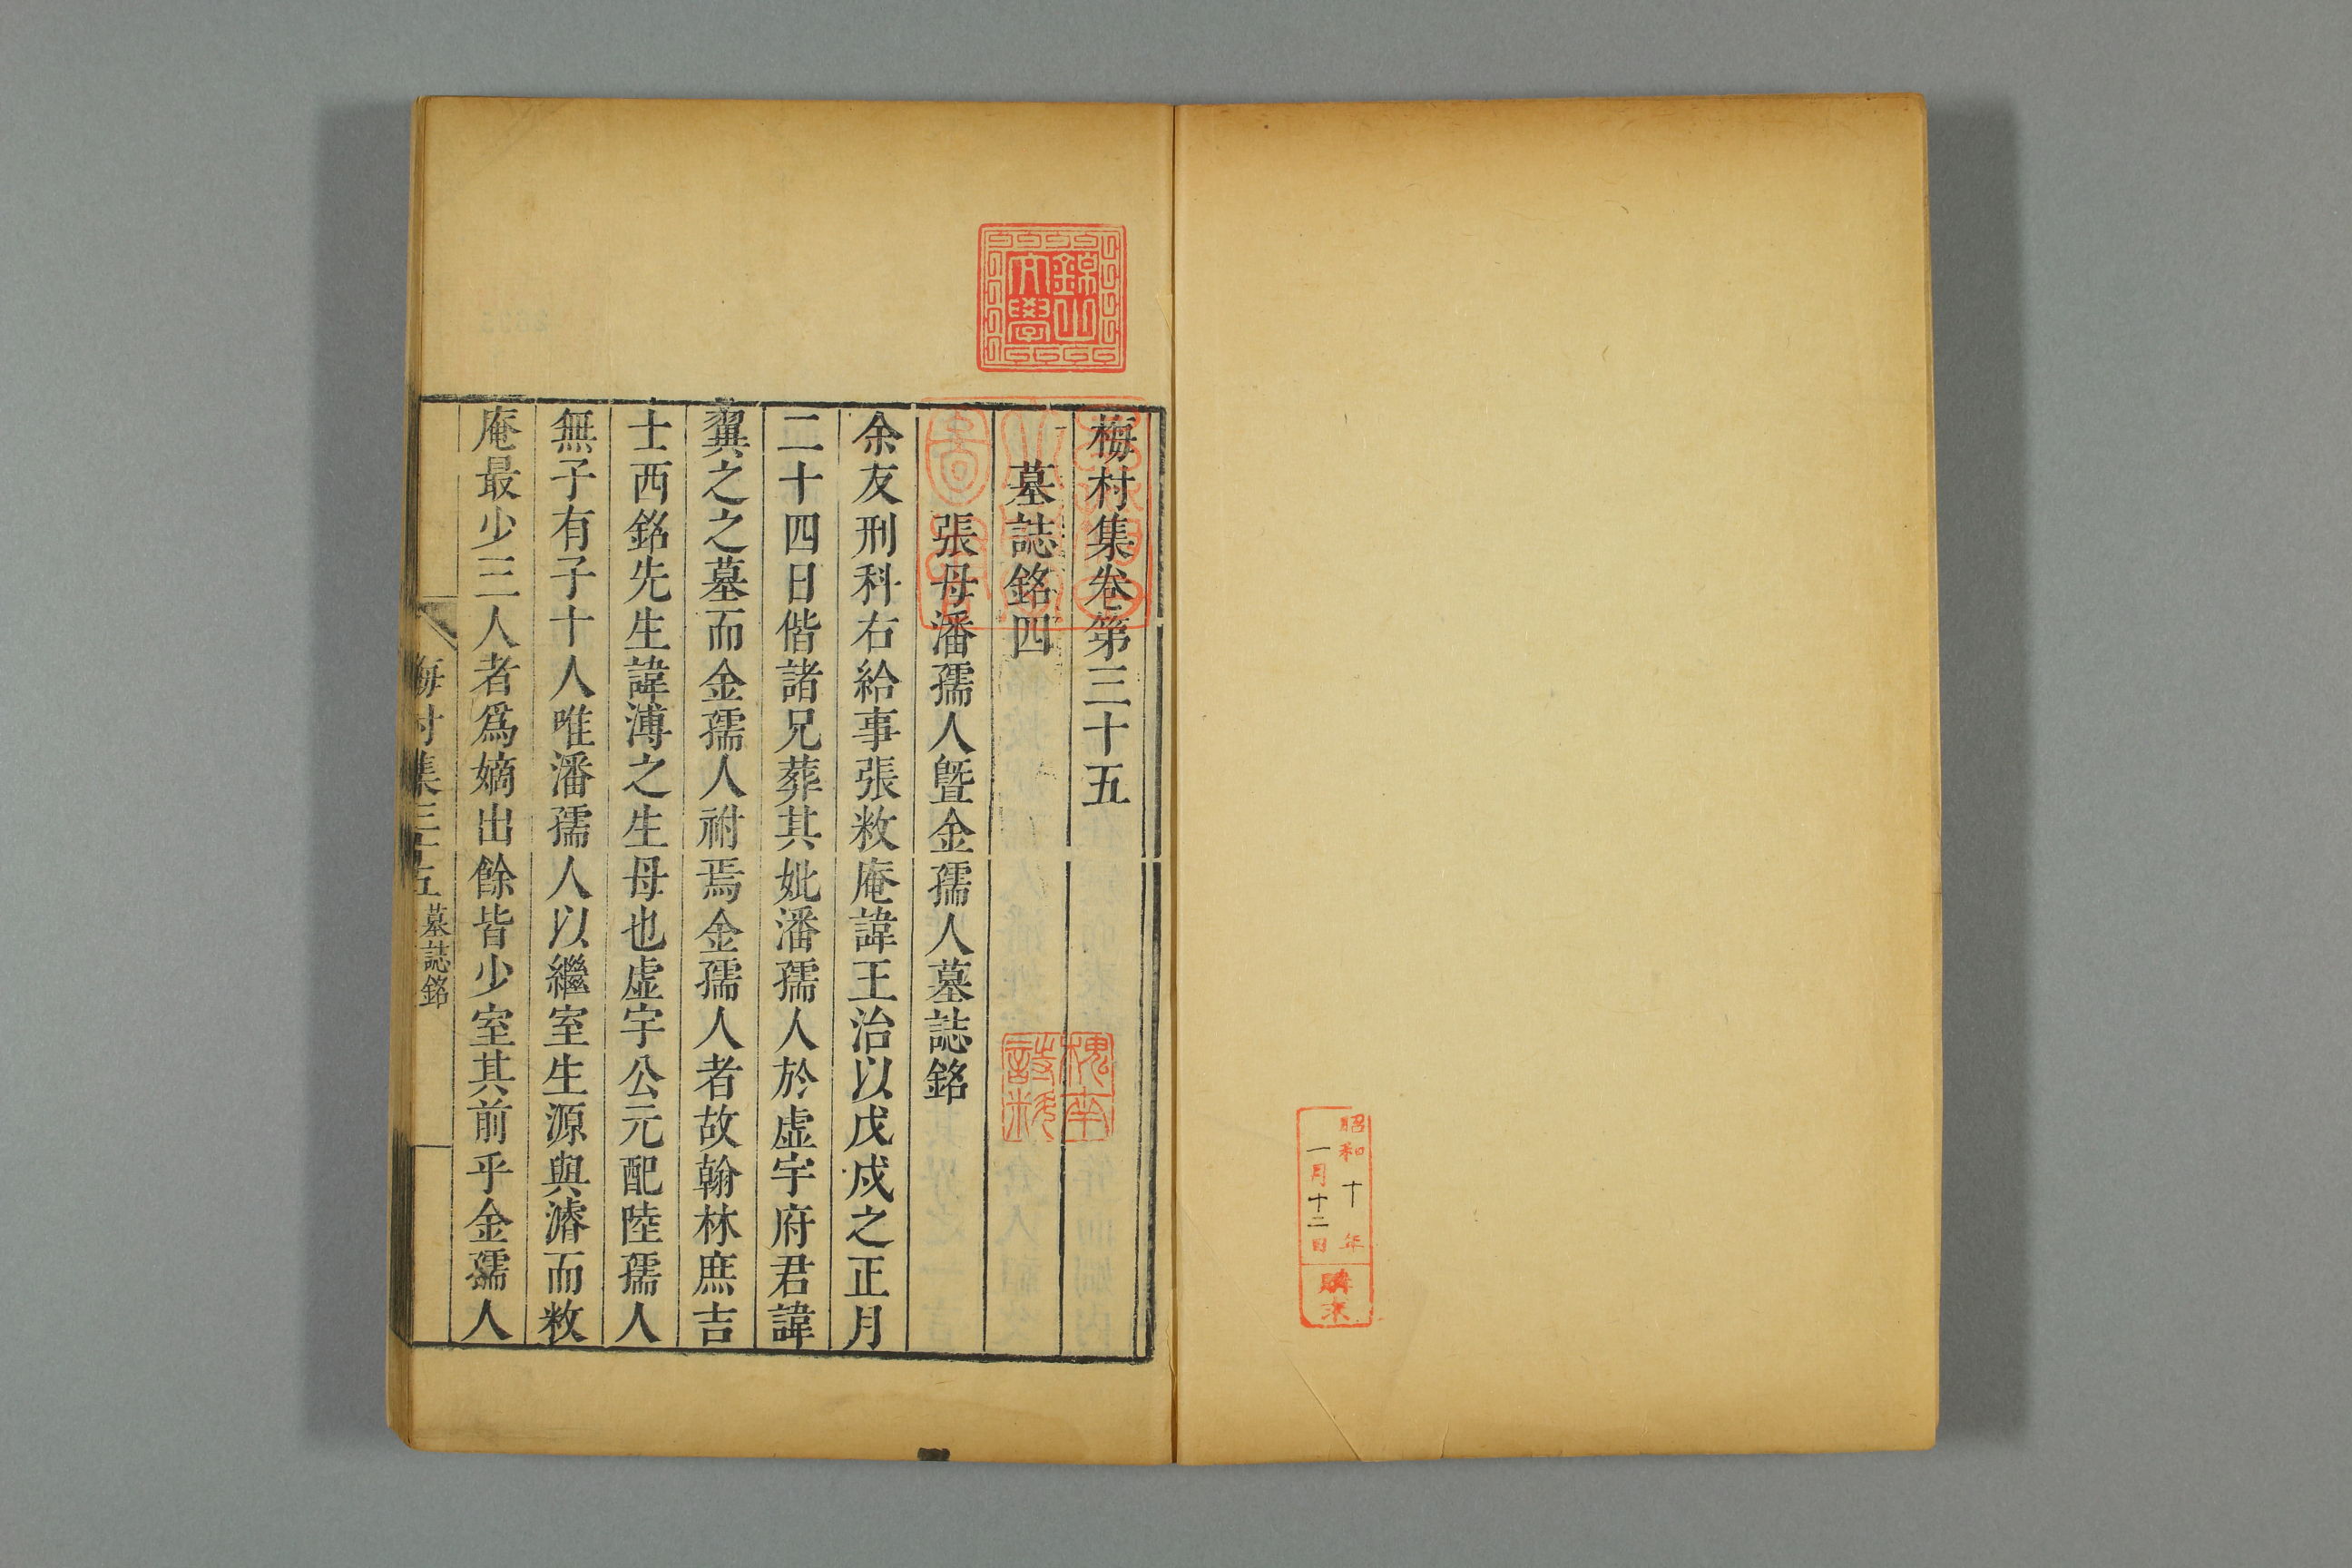 昭和十年
一月十二日
購求
錦山
文學
梅村集卷第三十五
墓誌銘四
張母潘孺人曁金孺人墓誌銘
余友刑科右給事張敉庵諱王治以戊戌之正月
二十四日偕諸兄葬其妣潘孺人於虛宇府君諱
翼之之墓而金孺人祔焉金孺人者故翰林庶吉
士西銘先生諱溥之生母也虛宇公元配陸孺人
無子有子十人唯潘孺人以繼室生源與濬而敉
庵最少三人者爲嫡出餘皆少室其前乎金孺人
梅村集三十五 墓誌銘